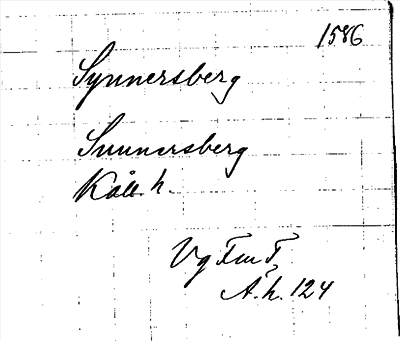 1586
Synnersberg
Sunnersberg
Kåll. h.
Vg Fm F,
Ä. h. 124